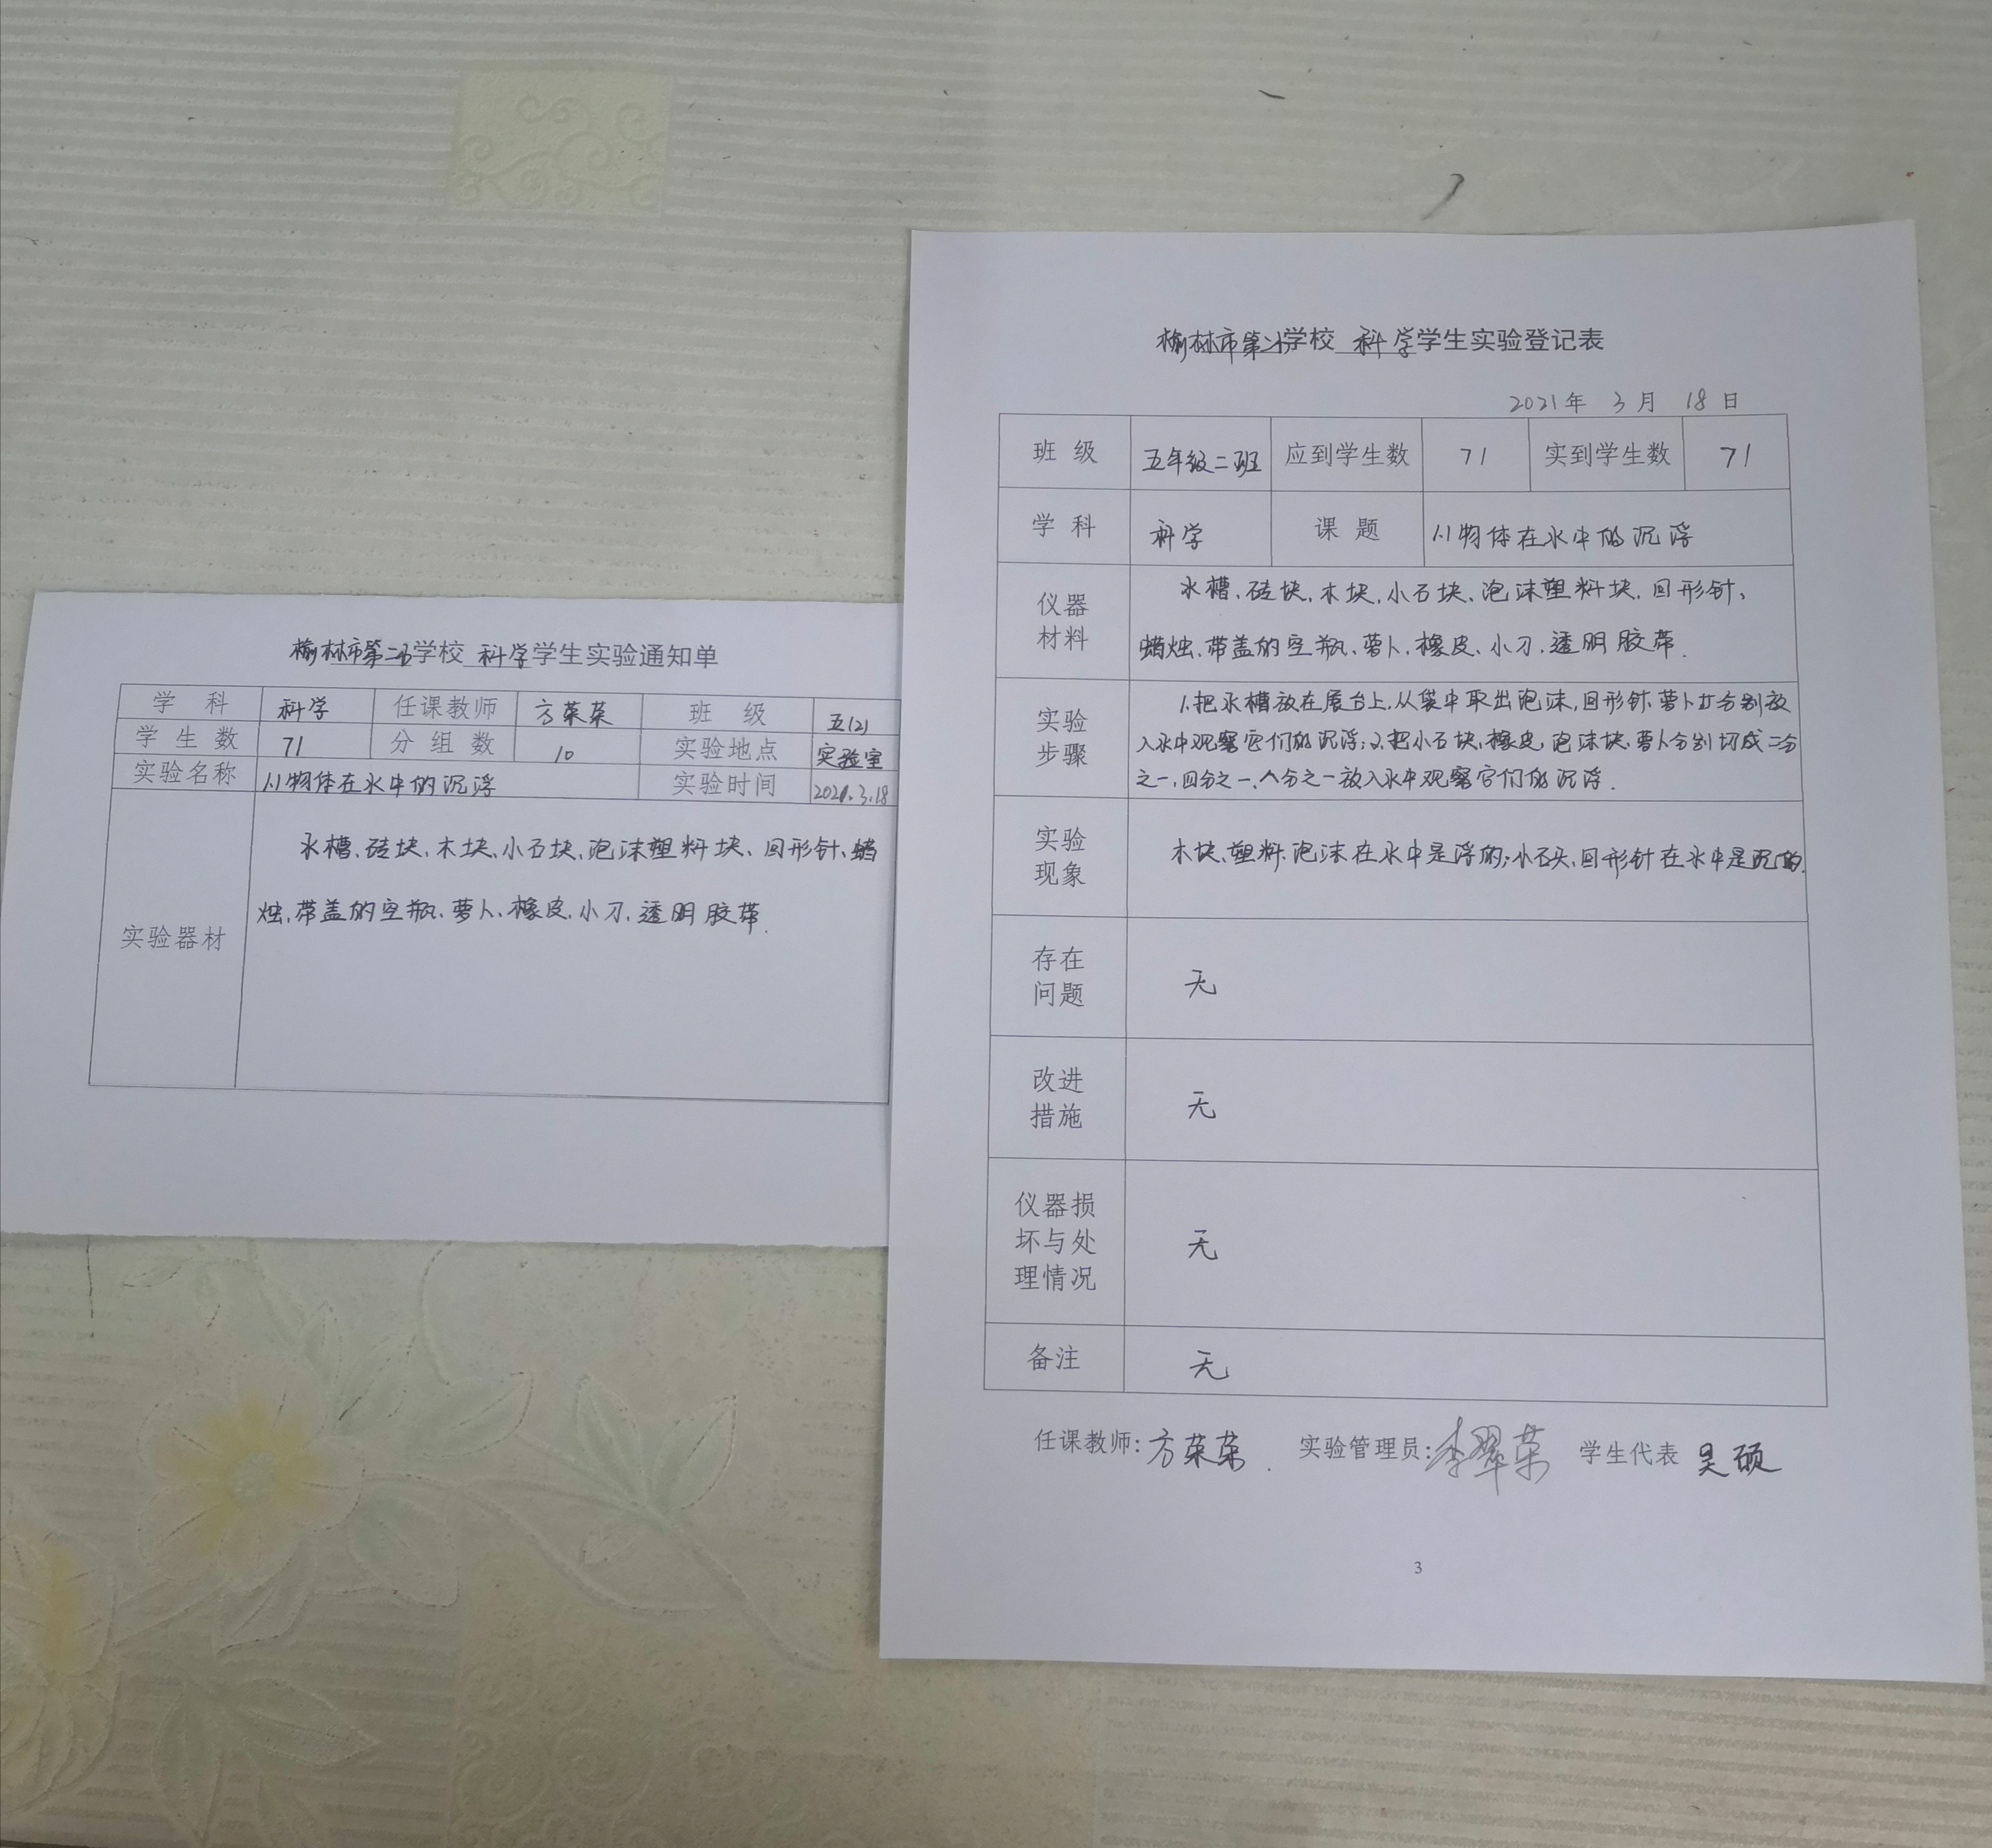 榆林市第二 学校 科学学生实验通知单
学 科 科学 任课教师 方荣荣 班 级 五(2)
学生数 71 分组数 10 实验地点 实验室
实验名称 1.1物体在水中的沉浮 实验时间 2021.3.18
实验器材
水槽、砖块、木块、小石块、泡沫塑料块、回形针、蜡
烛、带盖的空瓶、萝卜、橡皮、小刀、透明胶带.
榆林市第 学校 科学学生实验登记表
2021年 3月 18日
班 级 五年级二班 应到学生数 71 实到学生数 71
学 科 科学 课 题 1.1物体在水中的沉浮
仪器
材料
水槽、砖块、木块、小石块、泡沫塑料块、回形针、
蜡烛、带盖的空瓶、萝卜、橡皮、小刀、透明胶带.
实验
步骤
1.把水槽放在展台上,从袋中取出泡沫,回形针、萝卜 分别放
入水中观察它们的沉浮;2.把小石块、橡皮、泡沫块、萝卜分别切成二分
之一,四分之一、八分之一放入水中观察它们的沉浮.
实验
现象
木块、塑料、泡沫在水中是浮的;小石头、回形针在水中是沉的.
存在
问题
无
改进
措施
无
仪器损
坏与处
理情况
无
备注 无
任课教师:方荣荣. 实验管理员:李翠荣 学生代表 吴硕
3